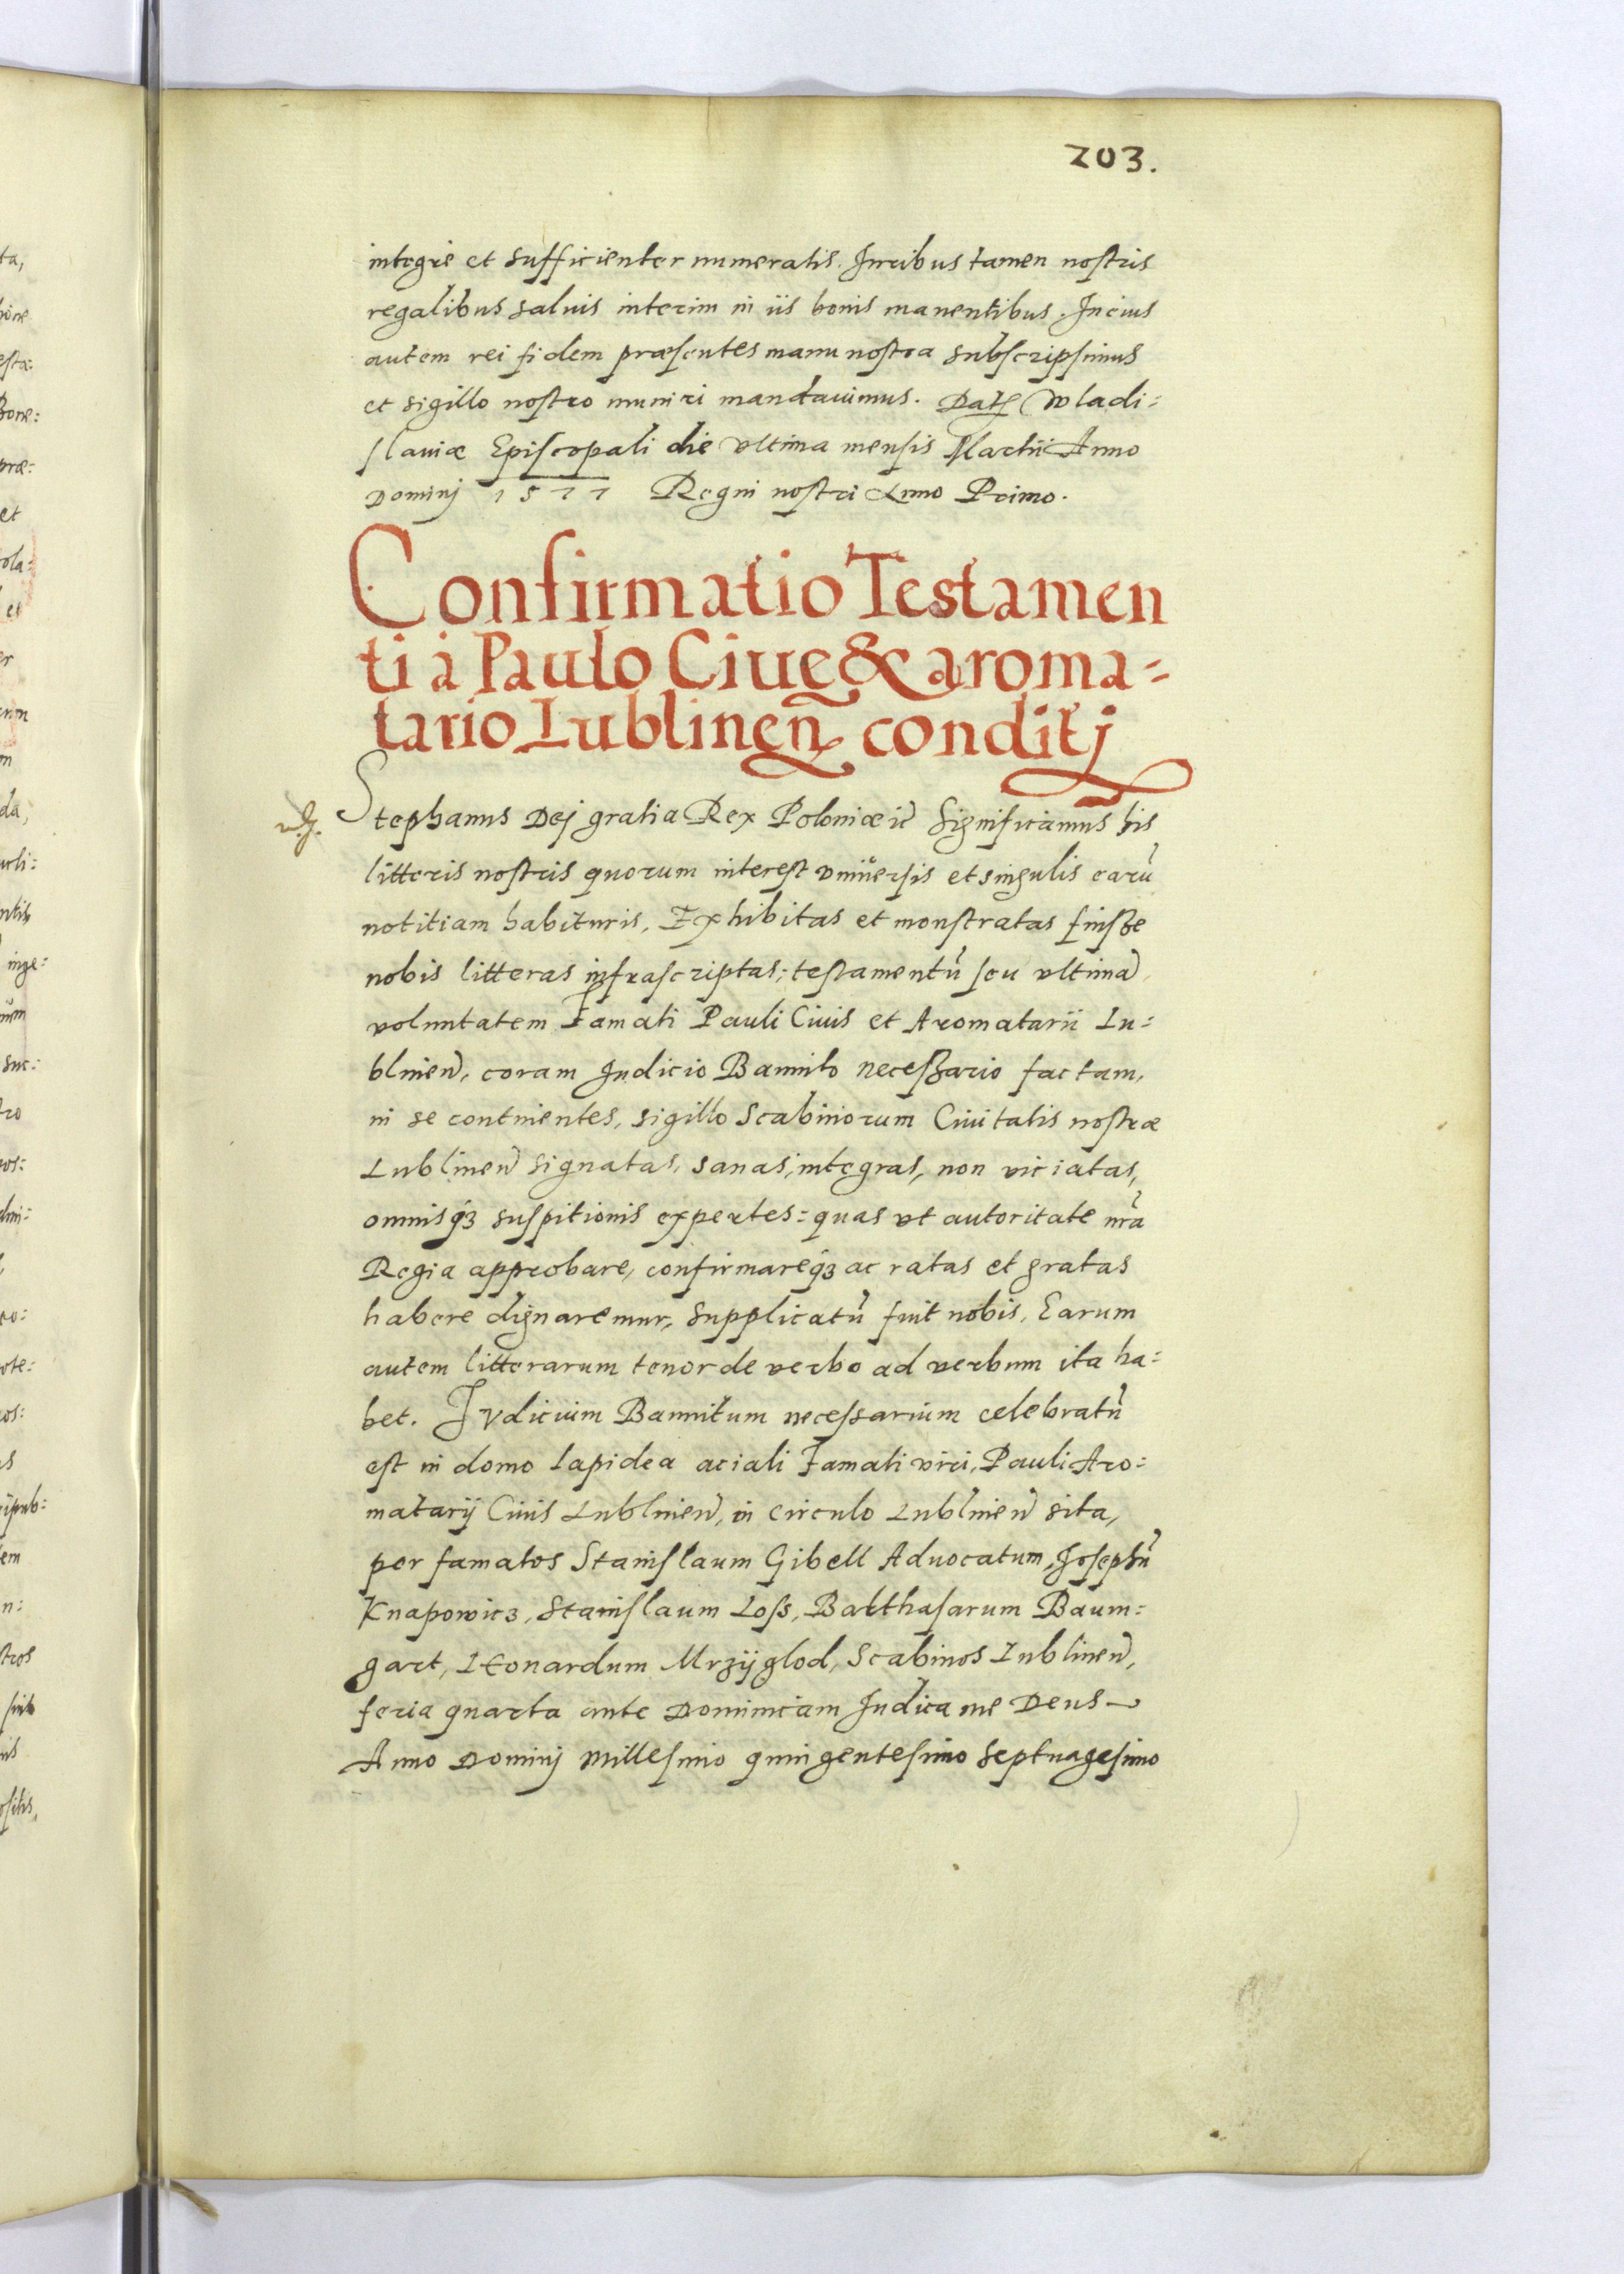 203.
integre et sufficienter numeratis. Iuribus tamen nostris
regalibus saluis interim in iis bonis manentibus. In cuius
autem rei fidem præsentes manu nostra subscripsimus
et sigillo nostro muniri mandauimus. Dat Wladi=
slauiæ Episcopali die vltima mensis Martii Anno
Dominj 1577 Regni nostri Anno Primo.
Confirmatio Testamen
ti à Paulo Ciue & aroma=
tario Lublinen conditj
Stephanus Dej gratia Rex Poloniæ ic Significamus his
litteris nostris quorum interest vniuersis et singulis earũ
notitiam habituris, Exhibitas et monstratas fuisse
nobis litteras infrascriptas: testamentũ seu vltimã
voluntatem Famati Pauli Ciuis et Aromatarii Lu=
blinen, coram Iudicio Bannito necessario factam,
in se continentes, sigillo Scabinorum Ciuitatis nostræ
Lublinen signatas, sanas, integras, non viciatas,
omnisqȝ suspitionis expertes: quas vt autoritate nrã
Regia approbare, confirmareqȝ ac ratas et gratas
habere dignaremur, supplicatũ fuit nobis, Earum
autem litterarum tenor de verbo ad verbum ita ha=
bet. Ivdicium Bannitum necessarium celebratũ
est in domo lapidea aciali Famati viri, Pauli Aro=
matarij Ciuis Lublinen, in circulo Lublinen sita,
per famatos Stanislaum Gibell Aduocatum, Josephũ
Knapowicz, Stanislaum Loss, Balthasarum Baum=
gart, Leonardum Mrzÿglod, Scabinos Lublinen,
feria quarta ante Dominicam Iudica me Deus
Anno Dominj millesimo quingentesimo septuagesimo